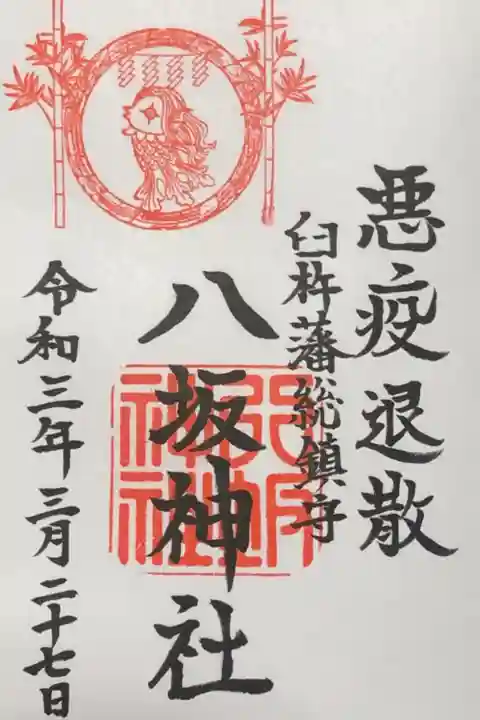 悪疫退散
臼杵藩総鎮守
八坂神社
令和三年三月二十七日
八坂神社